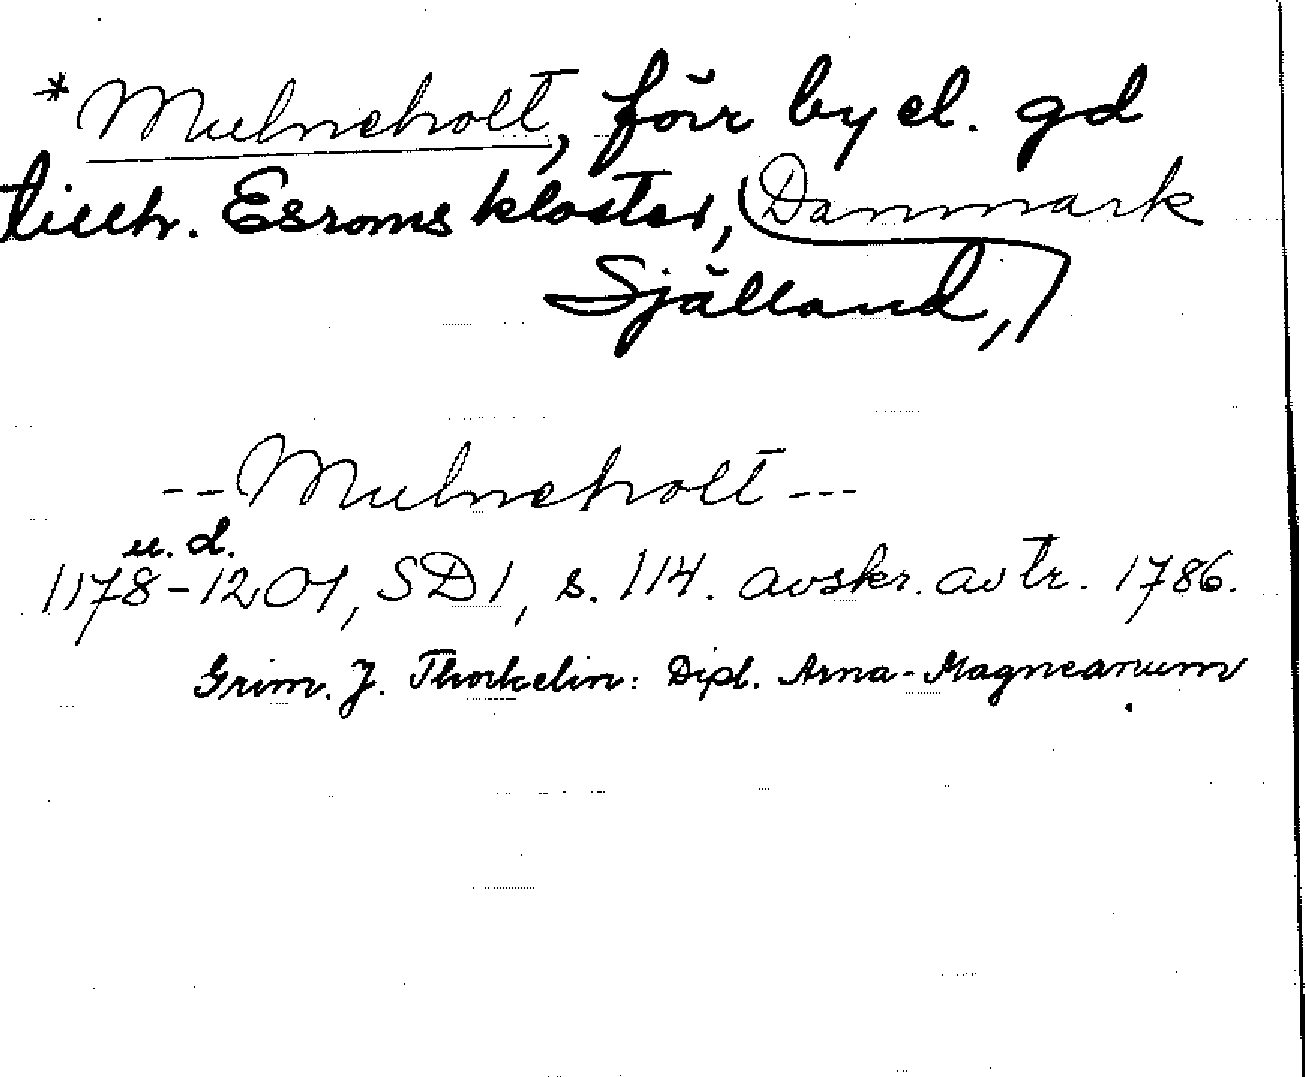 *Mulneholt, förr by el. gd
tillh. Esroms kloster, Danmark
Själland,
--Mulneholt---
u. d.
1178-1201, SD1, s. 114. avskr. av tr. 1786.
Grim. J. Thorkelin: Dipl. Arna-Magneanum